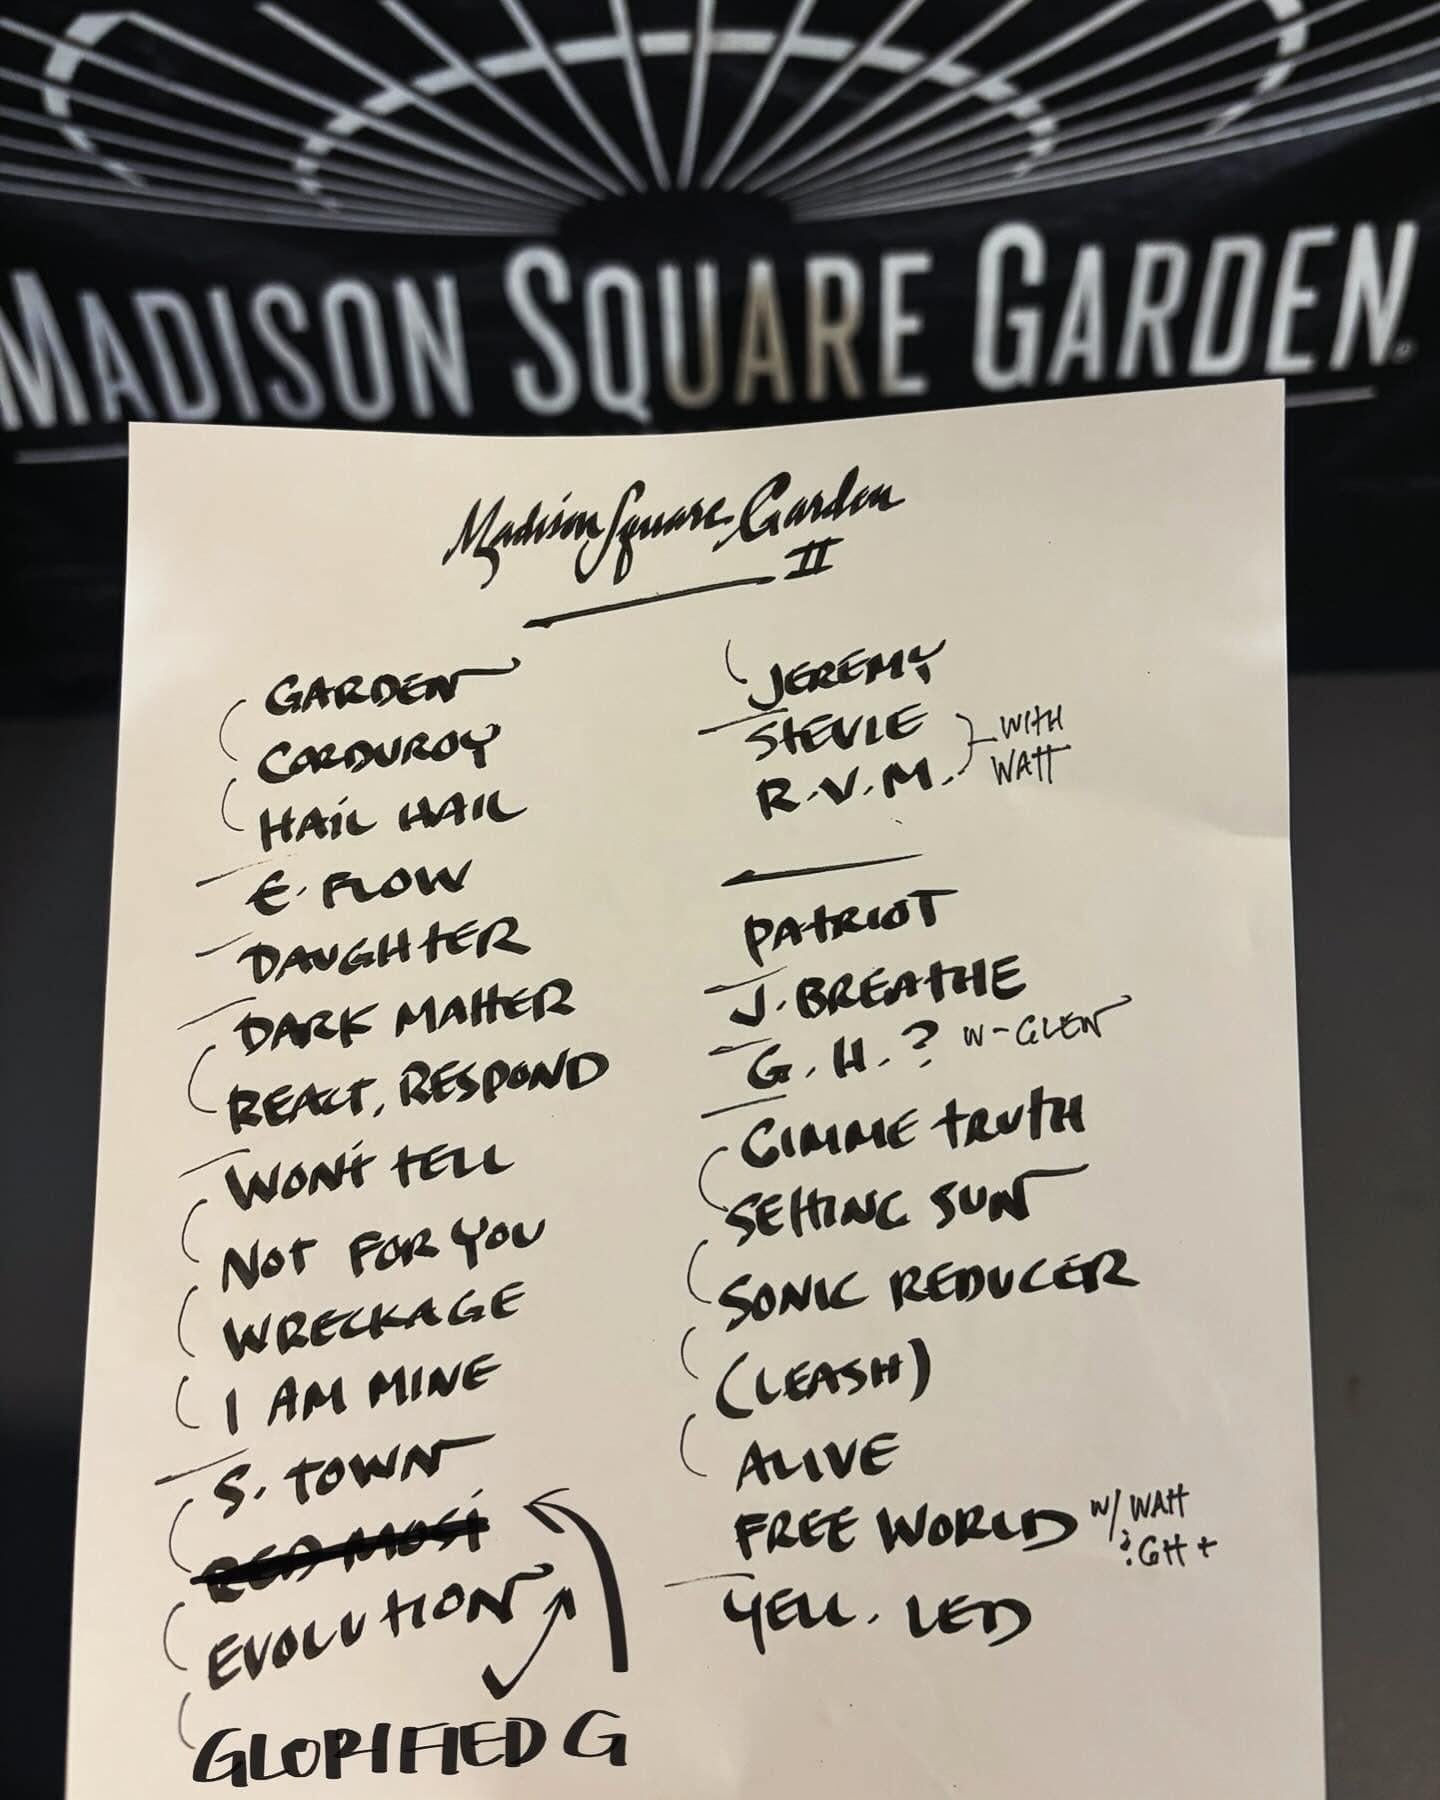 MADISON SQUARE GARDEN
Madison Square Garden
II
GARDEN
CORDUROY
HAIL HAIL
E. FLOW
DAUGHTER
DARK MATTER
REACT, RESPOND
WON'T TELL
NOT FOR YOU
WRECKAGE
I AM MINE
S. TOWN
RED MOSi
EVOLUTION
GLORIFIED G
JEREMY
STEVIE
R.V.M.
WITH
WATT
PATRIOT
J. BREATHE
G. H. ? W-GLEN
GIMME TRUTH
SETTING SUN
SONIC REDUCER
(LEASH)
ALIVE
FREE WORLD W/ WATT
: GH +
YELL. LED